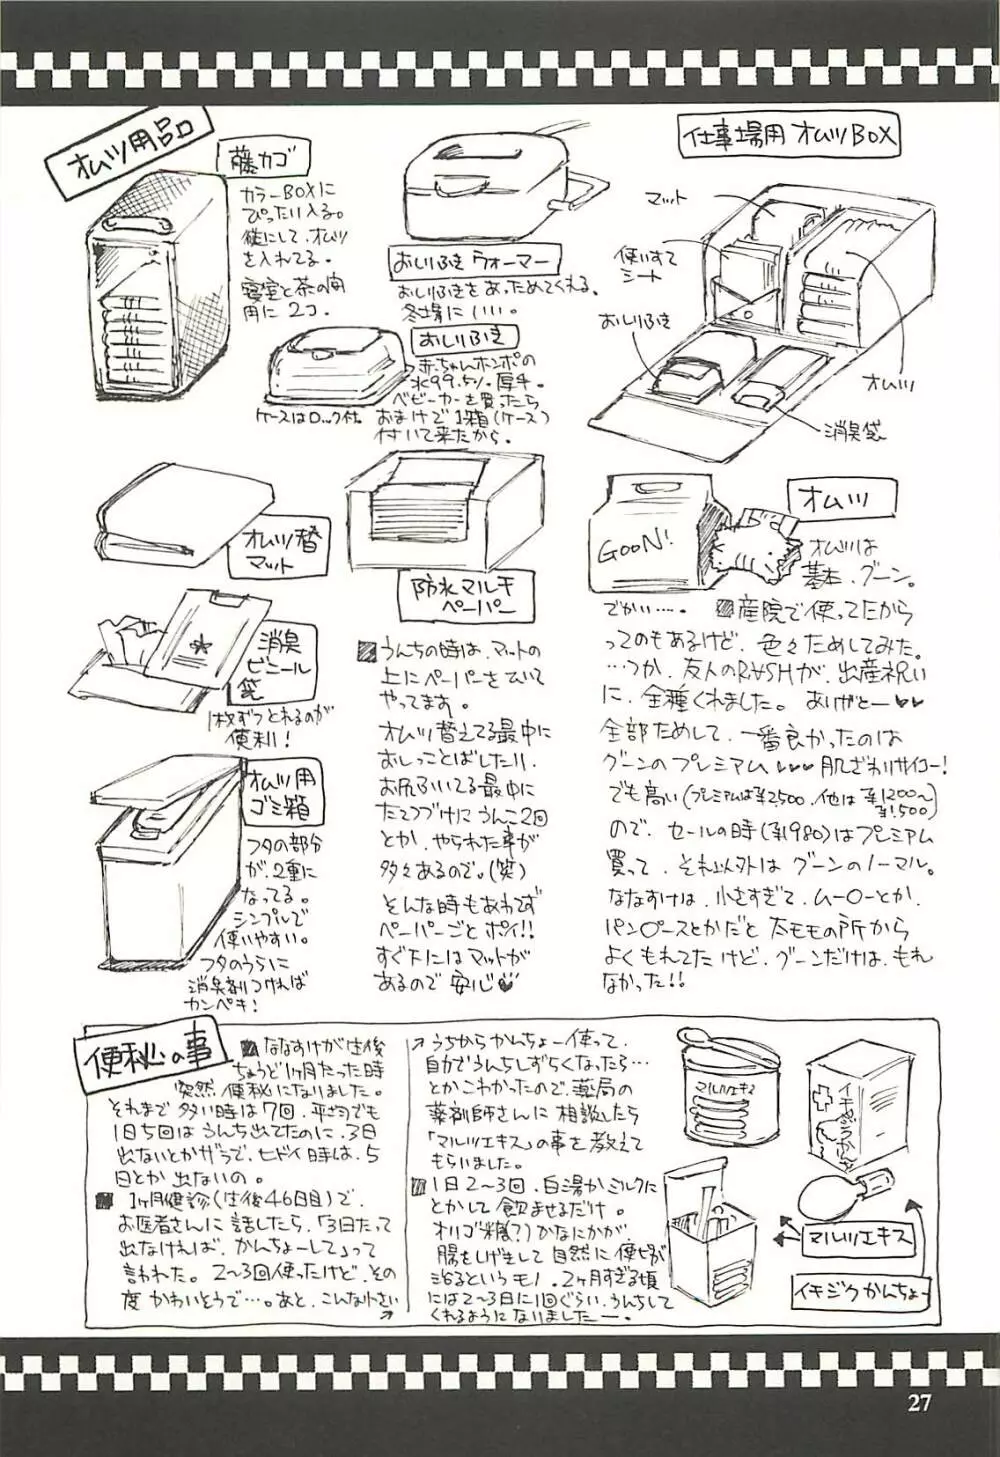 オムツ用品
藤カゴ
カラーBOXに
ぴったり入る。
縦にして、オムツ
を入れてる。
寝室と茶の間
用に2コ。
おしりふきウォーマー
おしりふきをあっためてくれる。
冬場にいい。
おしりふき
赤ちゃんホンポの
水99.5%厚手。
ベビーカーを買ったら
おまけで1箱(ケース)
付いて来たから。
ケースはロック付。
仕事場用オムツBOX
マット
使いすて
シート
おしりふき
オムツ
消臭袋
オムツ替
マット
消臭
ビニール
袋
1枚ずつとれるのが
便利!
オムツ用
ゴミ箱
フタの部分
が、2重に
なってる。
シンプルで
使いやすい。
フタのうらに
消臭剤つければ
カンペキ!
防水マルチ
ペーパー
うんちの時は、マットの
上にペーパーをひいて
やってます。
オムツ替えてる最中に
おしっことばしたり、
お尻ふいてる最中に
たてつづけにうんこ2回
とか、やられた事が
多々あるので。(笑)
そんな時もあわてず
ペーパーごとポイ!!
すぐ下にはマットが
あるので安心♥
GOON!
オムツ
オムツは
基本、グーン。
でかい…。産院で使ってたから
ってのもあるけど、色々ためしてみた。
…つか、友人のRASHが、出産祝い
に、全種くれました。ありがとー♥♥
全部ためして、一番良かったのは
グーンのプレミアム♥♥♥肌ざわりサイコー!
でも高い(プレミアムは¥2500、他は¥1200〜
¥1500)
ので、セールの時(¥1980)はプレミアム
買って、それ以外はグーンのノーマル。
ななすけは、小さすぎて、ムー○ーとか、
パン○ースとかだと太モモの所から
よくもれてたけど、グーンだけは、もれ
なかった!!
便秘の事
ななすけが生後
ちょうど1ヶ月たった時
突然便秘になりました。
それまで多い時は7回、平均でも
1日5回はうんち出てたのに、3日
出ないとかザラで、ヒドイ時は、5
日とか出ないの。
1ヶ月健診(生後46日目)で、
お医者さんに話したら、「3日たって
出なければ、かんちょーして」って
言われた。2〜3回使ったけど、その
度かわいそうで…。あと、こんな小さい
うちからかんちょー使って、
自力でうんちしずらくなったら…
とかこわかったので、薬局の
薬剤師さんに相談したら
「マルツエキス」の事を教えて
もらいました。
1日2〜3回、白湯かミルクに
とかして飲ませるだけ。
オリゴ糖(?)かなにかが、
腸をしげきして自然に便秘が
治るというモノ。2ヶ月すぎる頃
には2〜3日に1回ぐらい、うんちして
くれるようになりましたー。
マルツエキス
イチジクかんちょー
マルツエキス
イチジクかんちょー
27